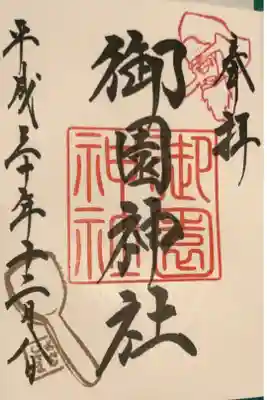 奉拝
御園神社
御園
神社
平成三十年十二月八日